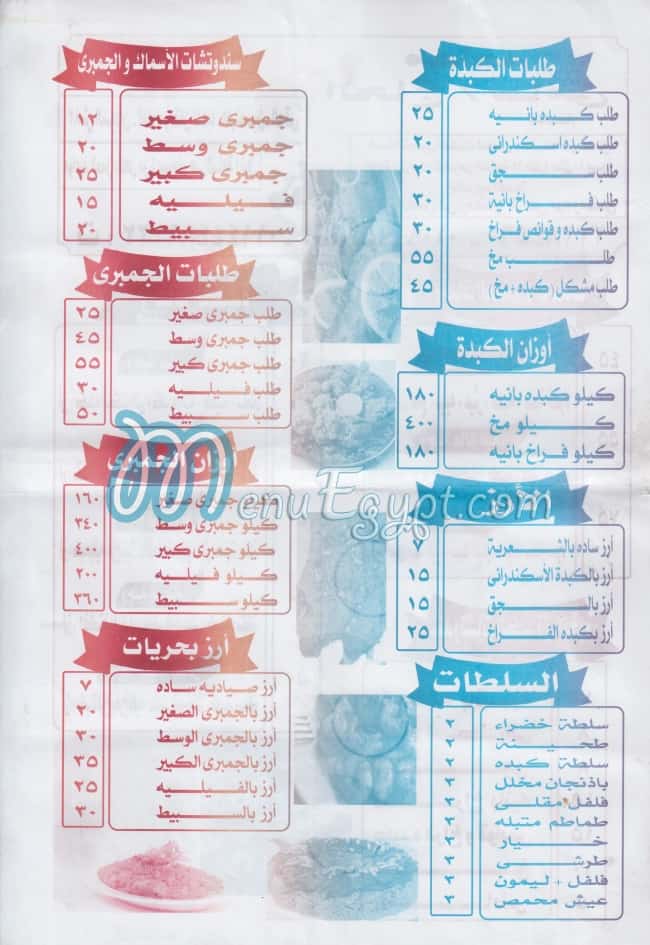 طلبات الكبدة
طلب كبده بانيه ٢٥
طلب كبده اسكندرانى ٢٠
طلب سجق ٢٠
طلب فراخ بانية ٣٠
طلب كبده و قوانص فراخ ٣٠
طلب مخ ٥٥
طلب مشكل ( كبده + مخ ) ٤٥
أوزان الكبدة
كيلو كبده بانيه ١٨٠
كيلو مخ ٤٠٠
كيلو فراخ بانيه ١٨٠
الأرز
أرز ساده بالشعرية ٧
أرز بالكبدة الأسكندرانى ١٥
أرز بالسجق ١٥
أرز بكبده الفراخ ٢٥
السلطات
سلطة خضراء ٢
طحينة ٢
سلطة كبده ٢
باذنجان مخلل ٣
فلفل مقلى ٣
طماطم متبله ٣
خيار ٣
طرشى ٣
فلفل + ليمون ٣
عيش محمص ٣
سندوتشات الأسماك و الجمبرى
جمبرى صغير ١٢
جمبرى وسط ٢٠
جمبرى كبير ٢٥
فيليه ١٥
سبيط ٢٠
طلبات الجمبرى
طلب جمبرى صغير ٢٥
طلب جمبرى وسط ٤٥
طلب جمبرى كبير ٥٥
طلب فيليه ٣٠
طلب سبيط ٥٠
أوزان الجمبرى
كيلو جمبرى صغير ١٦٠
كيلو جمبرى وسط ٣٤٠
كيلو جمبرى كبير ٤٠٠
كيلو فيليه ٢٠٠
كيلو سبيط ٣٦٠
أرز بحريات
أرز صياديه ساده ٧
أرز بالجمبرى الصغير ٢٠
أرز بالجمبرى الوسط ٣٠
أرز بالجمبرى الكبير ٣٥
أرز بالفيليه ٢٥
أرز بالسبيط ٣٠
MenuEgypt.com